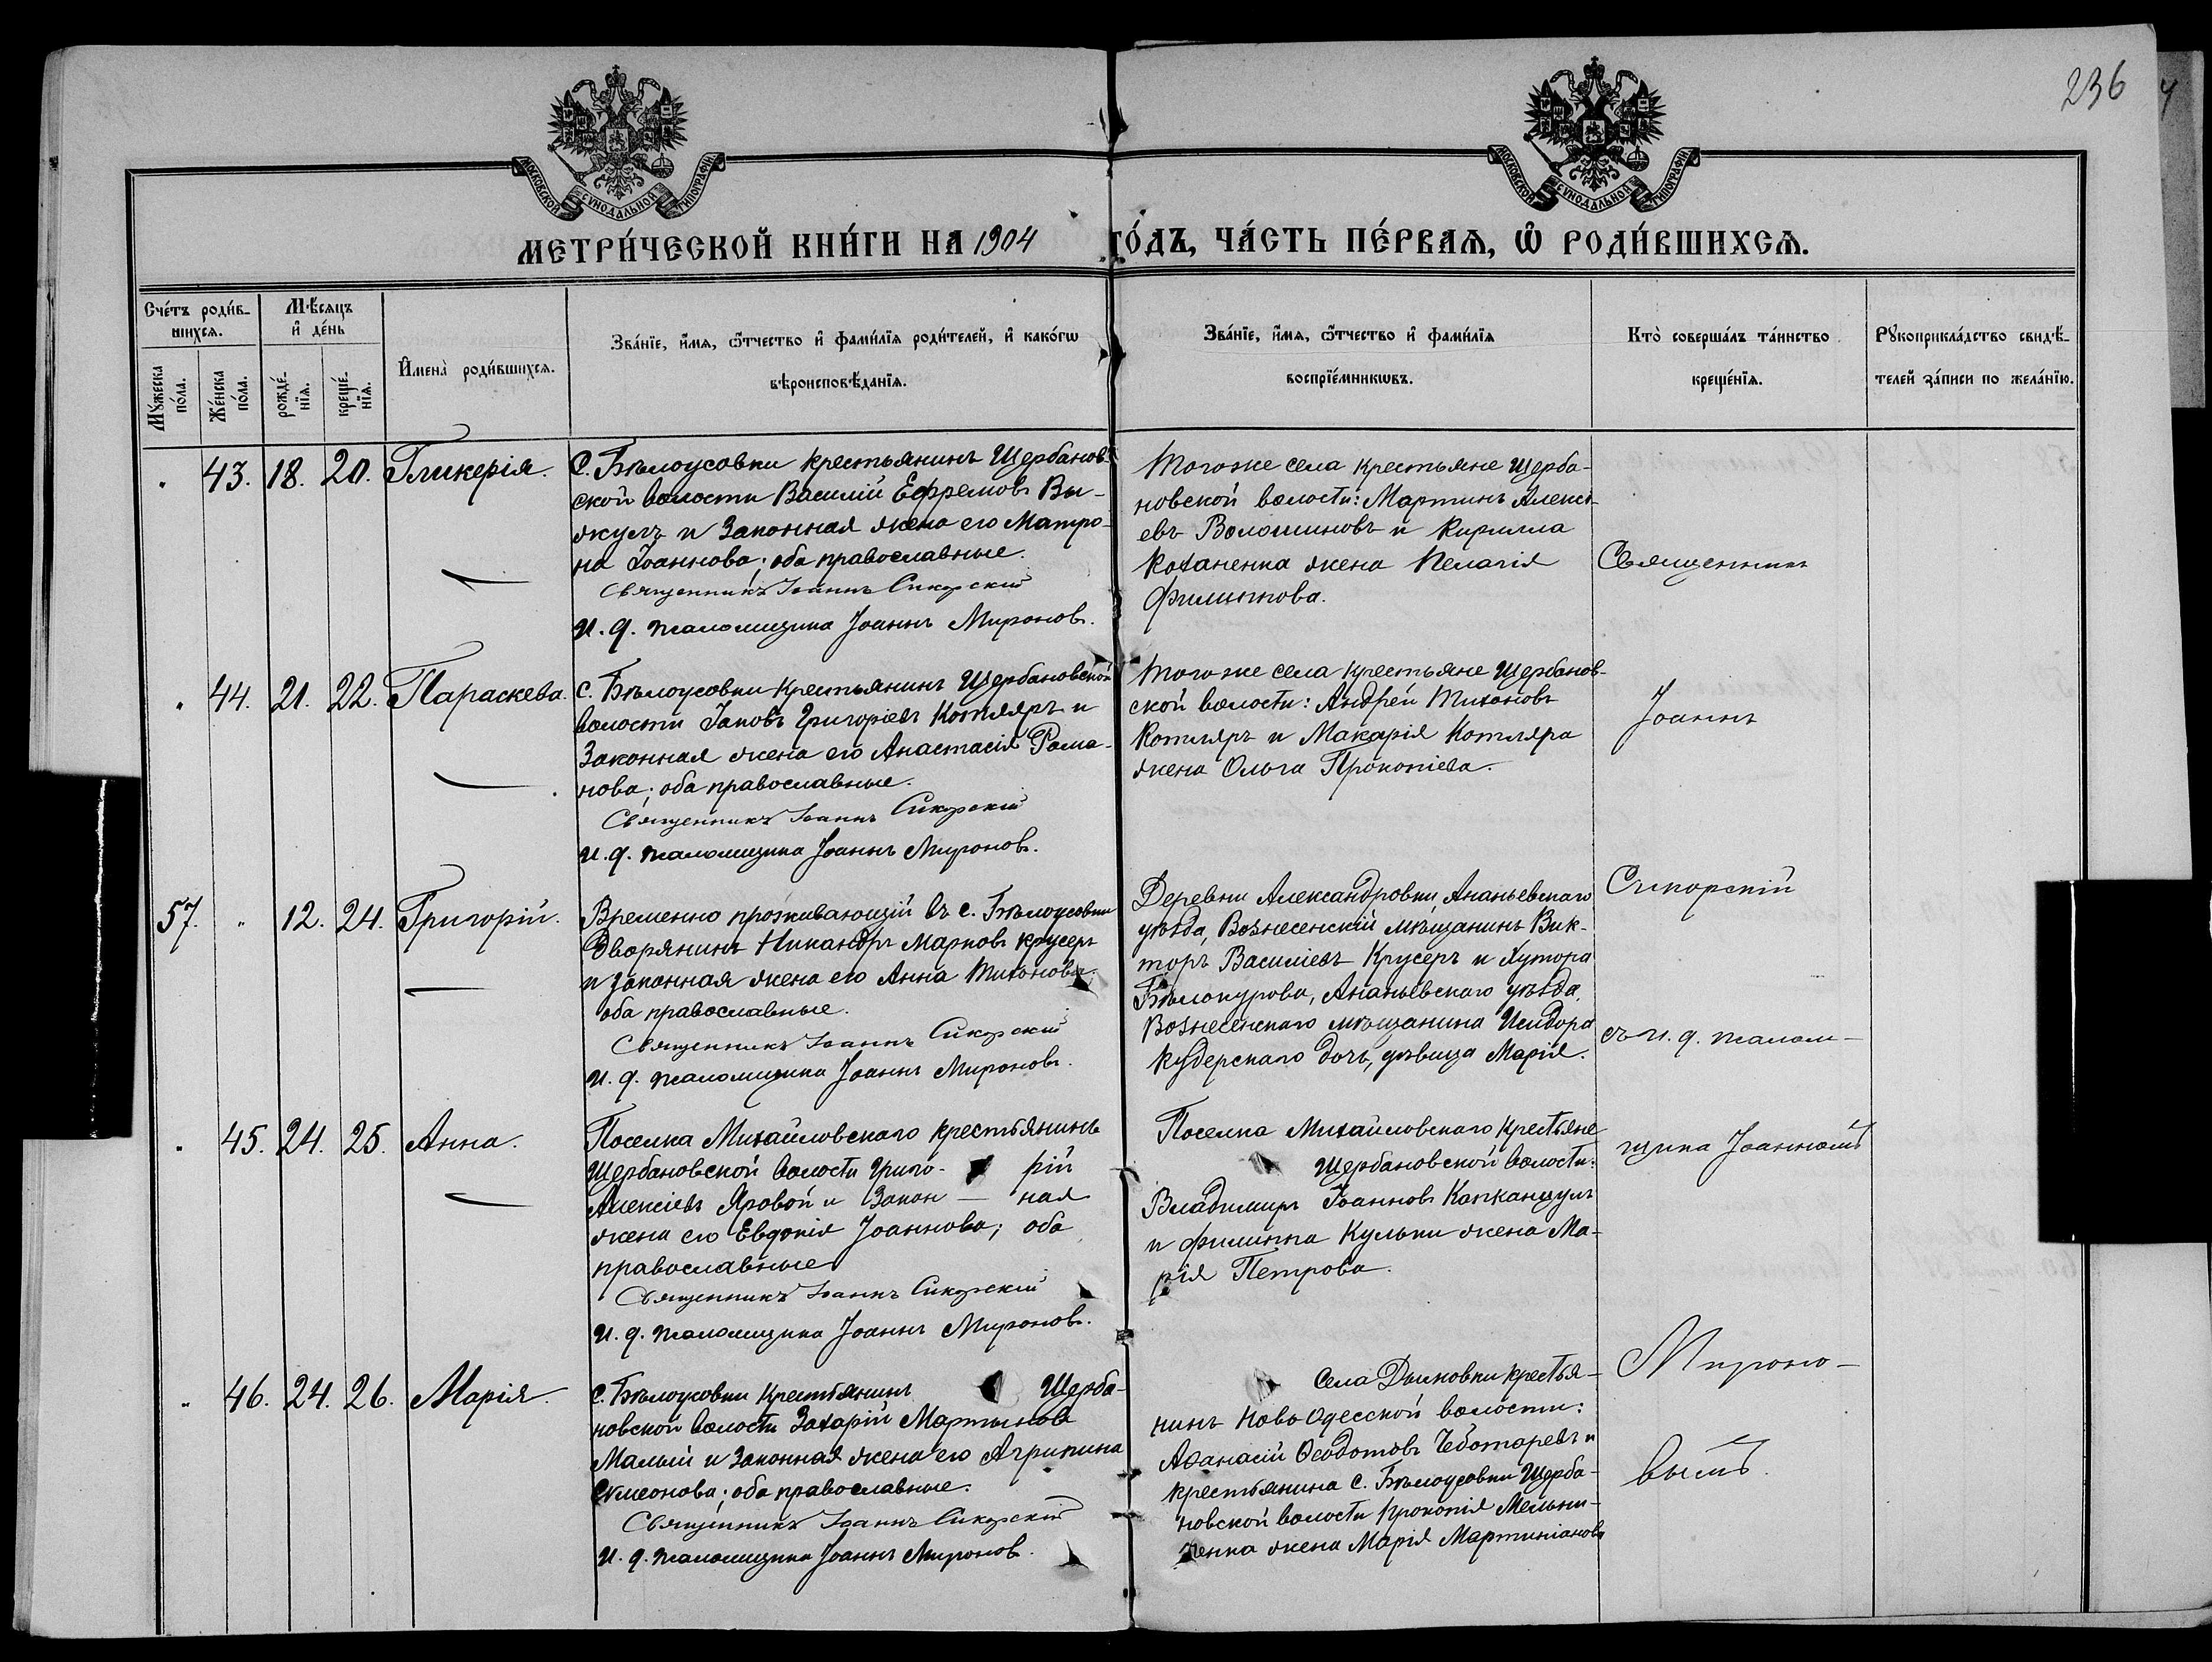 236
МОСКОВСКОЙ СѴНОДАЛЬНОЙ ТИПОГРАФІИ
МОСКОВСКОЙ СѴНОДАЛЬНОЙ ТИПОГРАФІИ
МЕТРИ́ЧЕСКОЙ КНИ́ГИ НА 1904 ГО́ДЪ, ЧА́СТЬ ПЕ́РВАѦ, Ѡ РОДИ́ВШИХСѦ.
Сче́тъ роди́в-
шихсѧ.
Мꙋ́жеска
по́ла.
Же́нска
по́ла.
Мѣ́сѧцъ
и҆ де́нь
рожде́-
нїѧ.
креще́-
нїѧ.
И҆мена̀ роди́вшихсѧ.
Зва́нїе, и҆́мѧ, ѻ҆́тчество и҆ фами́лїѧ роди́телей, и҆ како́гѡ
вѣроисповѣ́данїѧ.
Зва́нїе, и҆́мѧ, ѻ҆́тчество и҆ фами́лїѧ
воспрїе́мникѡвъ.
Кто̀ соверша́лъ та́инство
креще́нїѧ.
Рꙋкоприкла́дство свидѣ́-
телей за́писи по жела́нїю.
" 43. 18. 20. Гликерія.
С. Бѣлоусовки крестьянинъ Щербанов-
ской волости Василій Ефремовъ Вы-
жулъ и законная жена его Матро-
на Іоаннова; оба православные.
Священникъ Іоаннъ Сикорскій
И. д. псаломщика Іоаннъ Мироновъ.
Того же села крестьяне Щерба-
новской волости: Мартинъ Алексі-
евъ Волошиновъ и Кирилла
Коханенка жена Пелагія
Филиппова.
" 44. 21. 22. Параскева.
С. Бѣлоусовки крестьянинъ Щербановской
волости Іаковъ Григоріевъ Котляръ и
законная жена его Анастасія Рома-
нова; оба православные.
Священникъ Іоаннъ Сикорскій
И. д. псаломщика Іоаннъ Мироновъ.
Того же села крестьяне Щербанов-
ской волости: Андрей Тихоновъ
Котляръ и Макарія Котляра
жена Ольга Прокопіева.
57. " 12. 24. Григорій.
Временно проживающій въ с. Бѣлоусовки
Дворянинъ Никандръ Марковъ Крусеръ
и законная жена его Анна Тихонова;
оба православные.
Священникъ Іоаннъ Сикорскій
И. д. псаломщика Іоаннъ Мироновъ.
Деревни Александровки, Ананьевскаго
уѣзда, Вознесенскій мѣщанинъ Вик-
торъ Василіевъ Крусеръ и Хутора
Бѣлокурова, Ананьевскаго уѣзда,
Вознесенскаго мѣщанина Исидора
Кудерскаго дочь, дѣвица Марія.
" 45. 24. 25. Анна.
Поселка Михайловскаго крестьянинъ
Щербановской волости Григо- рій
Алексіевъ Яровой и Закон - ная
жена его Евдокія Іоаннова; оба
православные
Священникъ Іоаннъ Сикорскій
И. д. псаломщика Іоаннъ Мироновъ.
Поселка Михайловскаго крестьяне
Щербановской волости:
Владимиръ Іоанновъ Капканцулъ
и Филиппа Кульки жена Ма-
рія Петрова.
" 46. 24. 26. Марія.
С. Бѣлоусовки крестьянинъ Щерба-
новской волости Захарій Мартыновъ
Малый и законная жена его Агрипина
Симеонова; оба православные.
Священникъ Іоаннъ Сикорскій
И. д. псаломщика Іоаннъ Мироновъ.
Села Дымовки крестья-
нинъ Ново Одесской волости:
Аѳанасій Ѳеодотовъ Чеботаревъ и
крестьянина С. Бѣлоусовки Щерба-
новской волости Прокопія Мельни-
ченка жена Марія Мартиніанова
Священникъ
Іоаннъ
Сикорскій
съ и. д. псалом-
щика Іоанномъ
Мироно-
вымъ.